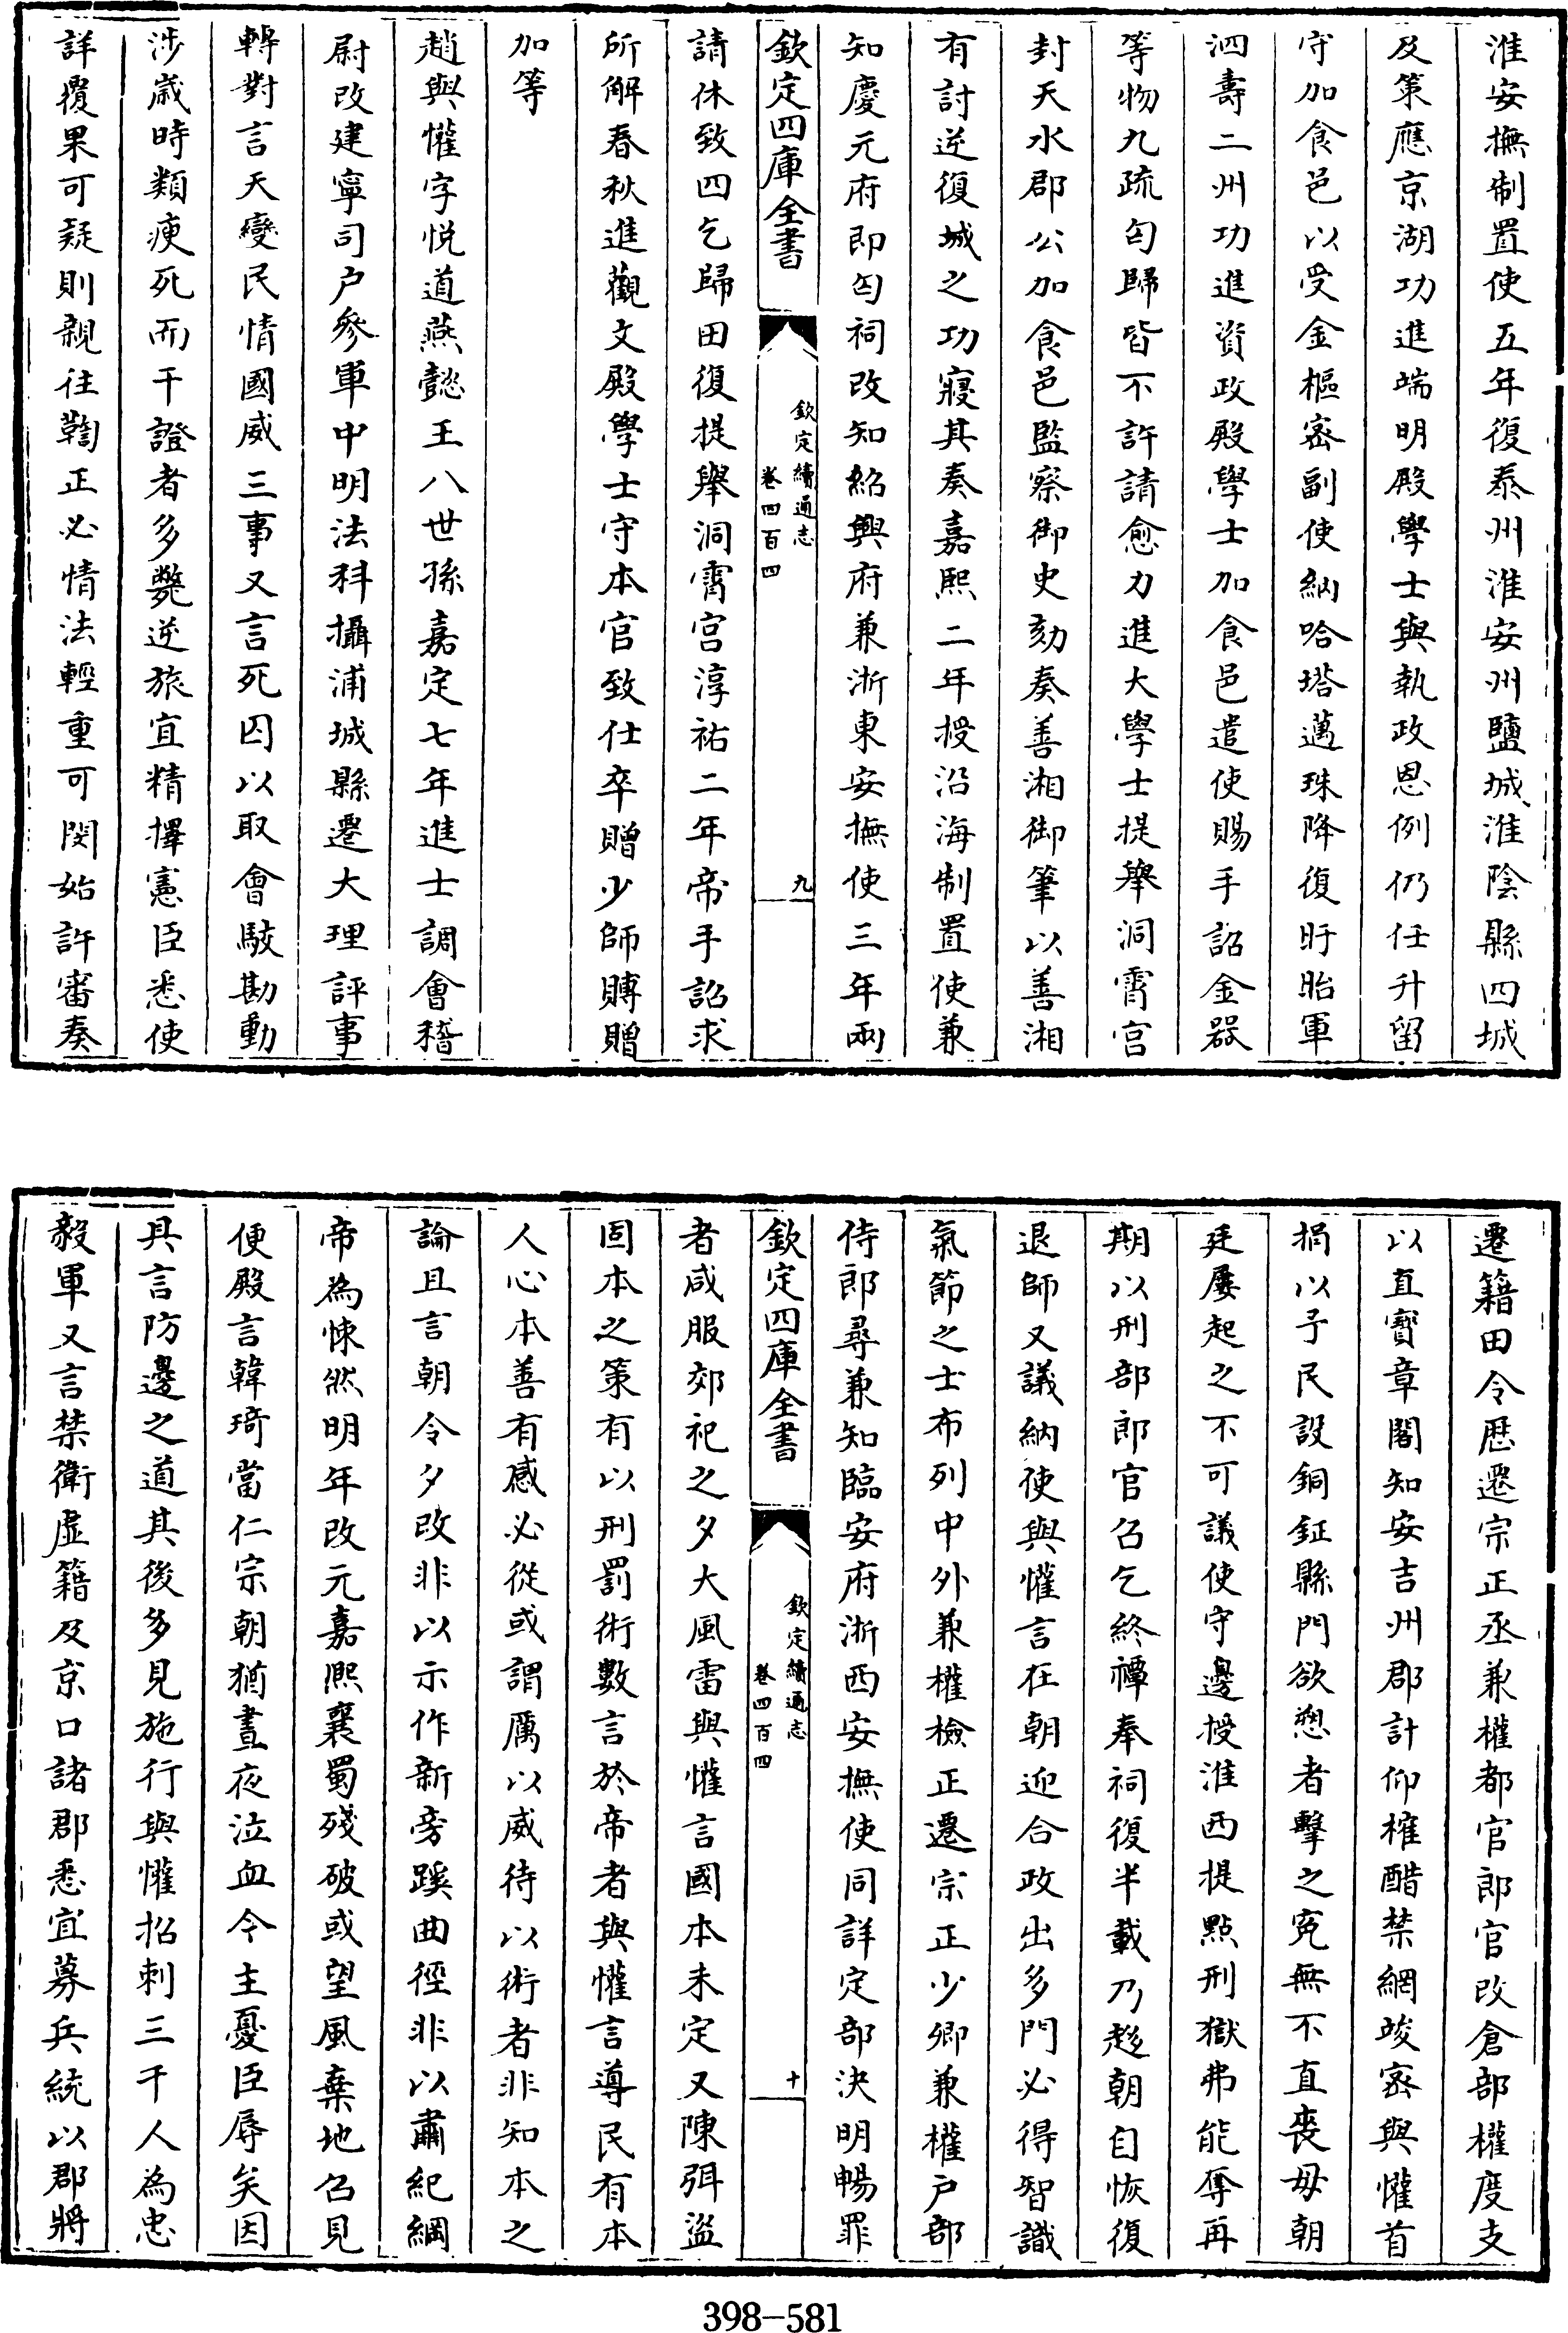 淮安撫制置使五年復泰州淮安州鹽城淮陰縣四城
及策應京湖功進端明殿學士與執政恩例仍任升留
守加食邑以受金樞密副使納哈塔邁珠降復盱眙軍
泗壽二州功進資政殿學士加食邑遣使賜手詔金器
等物九疏匄歸皆不許請愈力進大學士提舉洞霄宮
封天水郡公加食邑監察御史劾奏善湘御筆以善湘
有討逆復城之功寢其奏嘉熙二年授沿海制置使兼
知慶元府即匄祠改知紹興府兼浙東安撫使三年兩
欽定四庫全書
欽定續通志
卷四百四
九
請休致四乞歸田復提舉洞霄宮淳祐二年帝手詔求
所解春秋進觀文殿學士守本官致仕卒贈少師賻贈
加等
趙與懽字悅道燕懿王八世孫嘉定七年進士調會稽
尉改建寧司户參軍中明法科攝浦城縣遷大理評事
轉對言天變民情國威三事又言死囚以取會駮勘動
涉歲時類瘐死而干證者多斃逆旅宜精擇憲臣悉使
詳覆果可疑則親往鞫正必情法輕重可閔始許審奏
遷籍田令歷遷宗正丞兼權都官郎官改倉部權度支
以直寶章閣知安吉州郡計仰榷酤禁網峻密與懽首
捐以予民設銅鉦縣門欲愬者擊之寃無不直喪母朝
廷屢起之不可議使守邊授淮西提點刑獄弗能奪再
期以刑部郎官召乞終禫奉祠復半載乃趍朝自恢復
退師又議納使與懽言在朝迎合政出多門必得智識
氣節之士布列中外兼權檢正遷宗正少卿兼權户部
侍郎尋兼知臨安府浙西安撫使同詳定部決明暢罪
欽定四庫全書
欽定續通志
卷四百四
十
者咸服郊祀之夕大風雷與懽言國本未定又陳弭盜
固本之策有以刑罰術數言於帝者與懽言導民有本
人心本善有感必從或謂厲以威待以術者非知本之
論且言朝令夕改非以示作新旁蹊曲徑非以肅紀綱
帝為悚然明年改元嘉熙襄蜀殘破或望風棄地召見
便殿言韓琦當仁宗朝猶晝夜泣血今主憂臣辱矣因
具言防邊之道其後多見施行與懽招刺三千人為忠
毅軍又言禁衛虛籍及京口諸郡悉宜募兵統以郡將
398-581